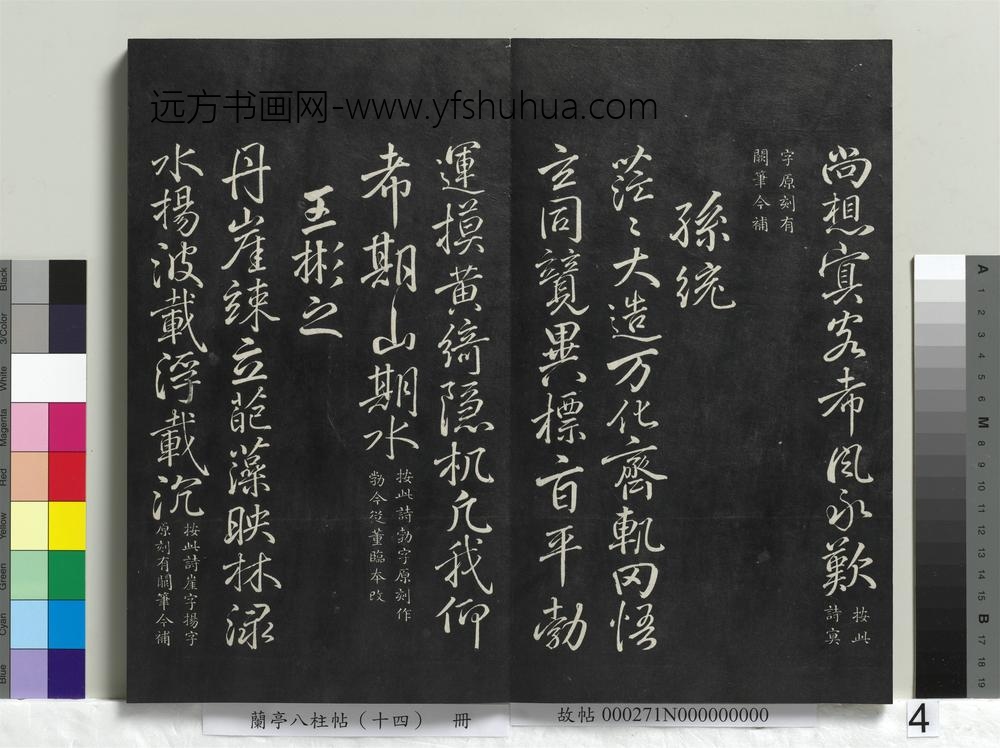 远方书画网-www.yfshuhua.com
尚想冥客希風永歎
按此
詩冥
字原刻有
闕筆今補
孫統
茫〻大造万化齊軌罔悟
玄同競異標㫖平勃
運摸黃綺隐机凡我仰
希期山期水
按此詩勃字原刻作
勃今從董臨本改
王彬之
丹崖竦立葩藻映林渌
水揚波載浮載沉
按此詩崖字揚字
原刻有闕筆今補
蘭亭八柱帖（十四） 冊
故帖 000271N000000000
4
Black
3/Color
White
Magenta
Red
Yellow
Green
Cyan
Blue
A
1
2
3
4
5
6
M
8
9
10
11
12
13
14
15
B
17
18
19